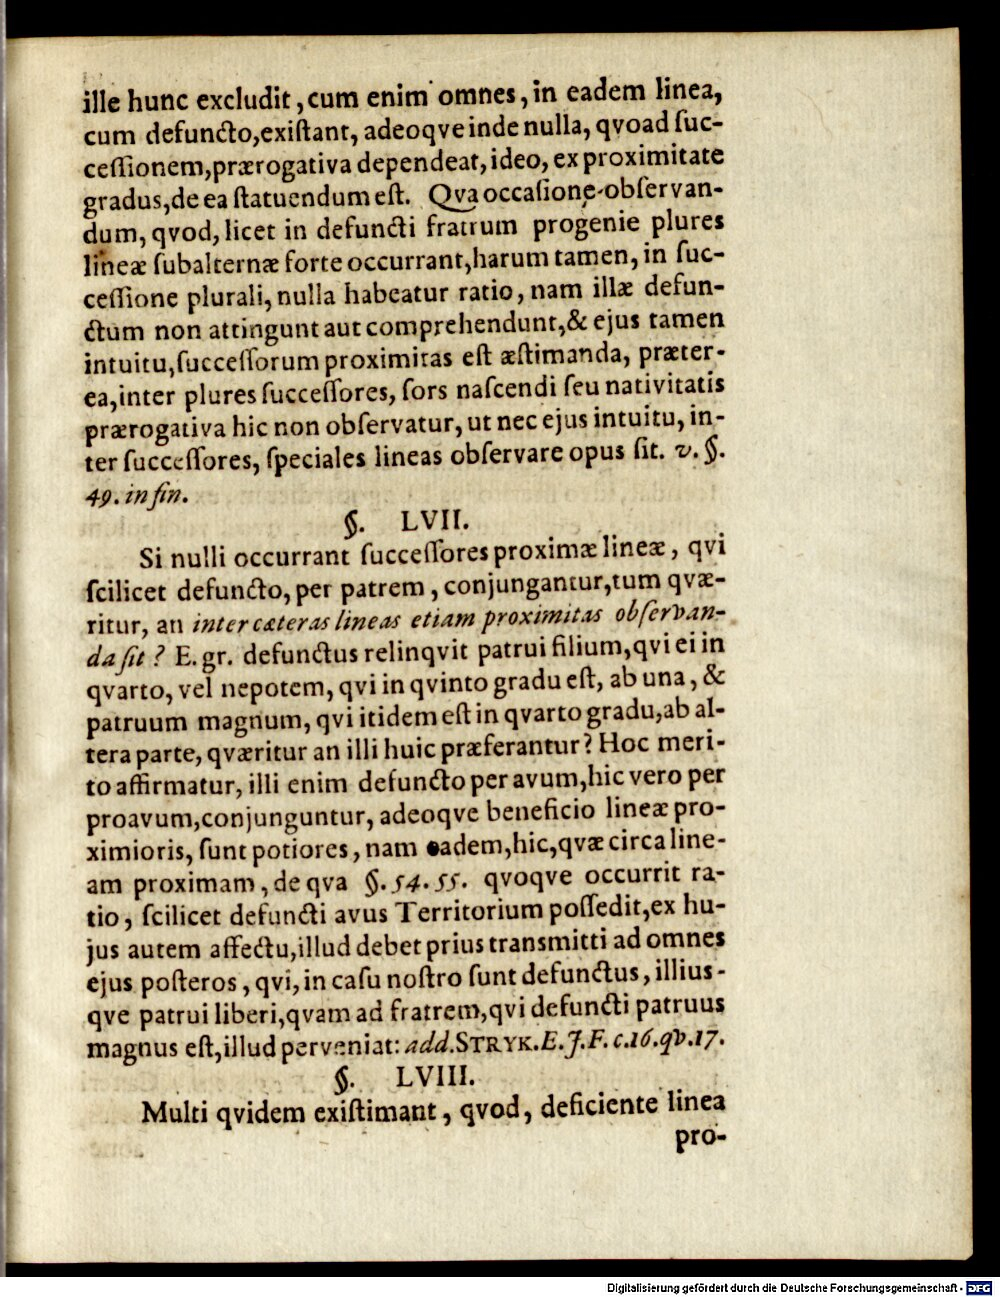 ille hunc excludit, cum enim omnes, in eadem linea,
cum defuncto, exiſtant, adeoqve inde nulla, qvoad ſuc-
ceſſionem, prærogativa dependeat, ideo, ex proximitate
gradus, de ea ſtatuendum eſt. Qva occaſione obſervan-
dum, qvod, licet in defuncti fratrum progenie plures
lineæ ſubalternæ forte occurrant, harum tamen, in ſuc-
ceſſione plurali, nulla habeatur ratio, nam illæ defun-
ctum non attingunt aut comprehendunt, & ejus tamen
intuitu, ſucceſſorum proximitas eſt æſtimanda, præter-
ea, inter plures ſucceſſores, ſors naſcendi ſeu nativitatis
prærogativa hic non obſervatur, ut nec ejus intuitu, in-
ter ſucceſſores, ſpeciales lineas obſervare opus ſit. v. §.
49. in fin.
§. LVII.
Si nulli occurrant ſucceſſores proximæ lineæ, qvi
ſcilicet defuncto, per patrem, conjungantur, tum qvæ-
ritur, an inter cæteras lineas etiam proximitas obſervan-
da ſit? E. gr. defunctus relinqvit patrui filium, qvi ei in
qvarto, vel nepotem, qvi in qvinto gradu eſt, ab una, &
patruum magnum, qvi itidem eſt in qvarto gradu, ab al-
tera parte, qværitur an illi huic præferantur? Hoc meri-
to affirmatur, illi enim defuncto per avum, hic vero per
proavum, conjunguntur, adeoqve beneficio lineæ pro-
ximioris, ſunt potiores, nam eadem, hic, qvæ circa line-
am proximam, de qva §. 54. 55. qvoqve occurrit ra-
tio, ſcilicet defuncti avus Territorium poſſedit, ex hu-
jus autem affectu, illud debet prius transmitti ad omnes
ejus poſteros, qvi, in caſu noſtro ſunt defunctus, illius-
qve patrui liberi, qvam ad fratrem, qvi defuncti patruus
magnus eſt, illud perveniat: add. STRYK. E. J. F. c. 16. qv. 17.
§. LVIII.
Multi qvidem exiſtimant, qvod, deficiente linea
pro-
Digitalisierung gefördert durch die Deutsche Forschungsgemeinschaft - DFG